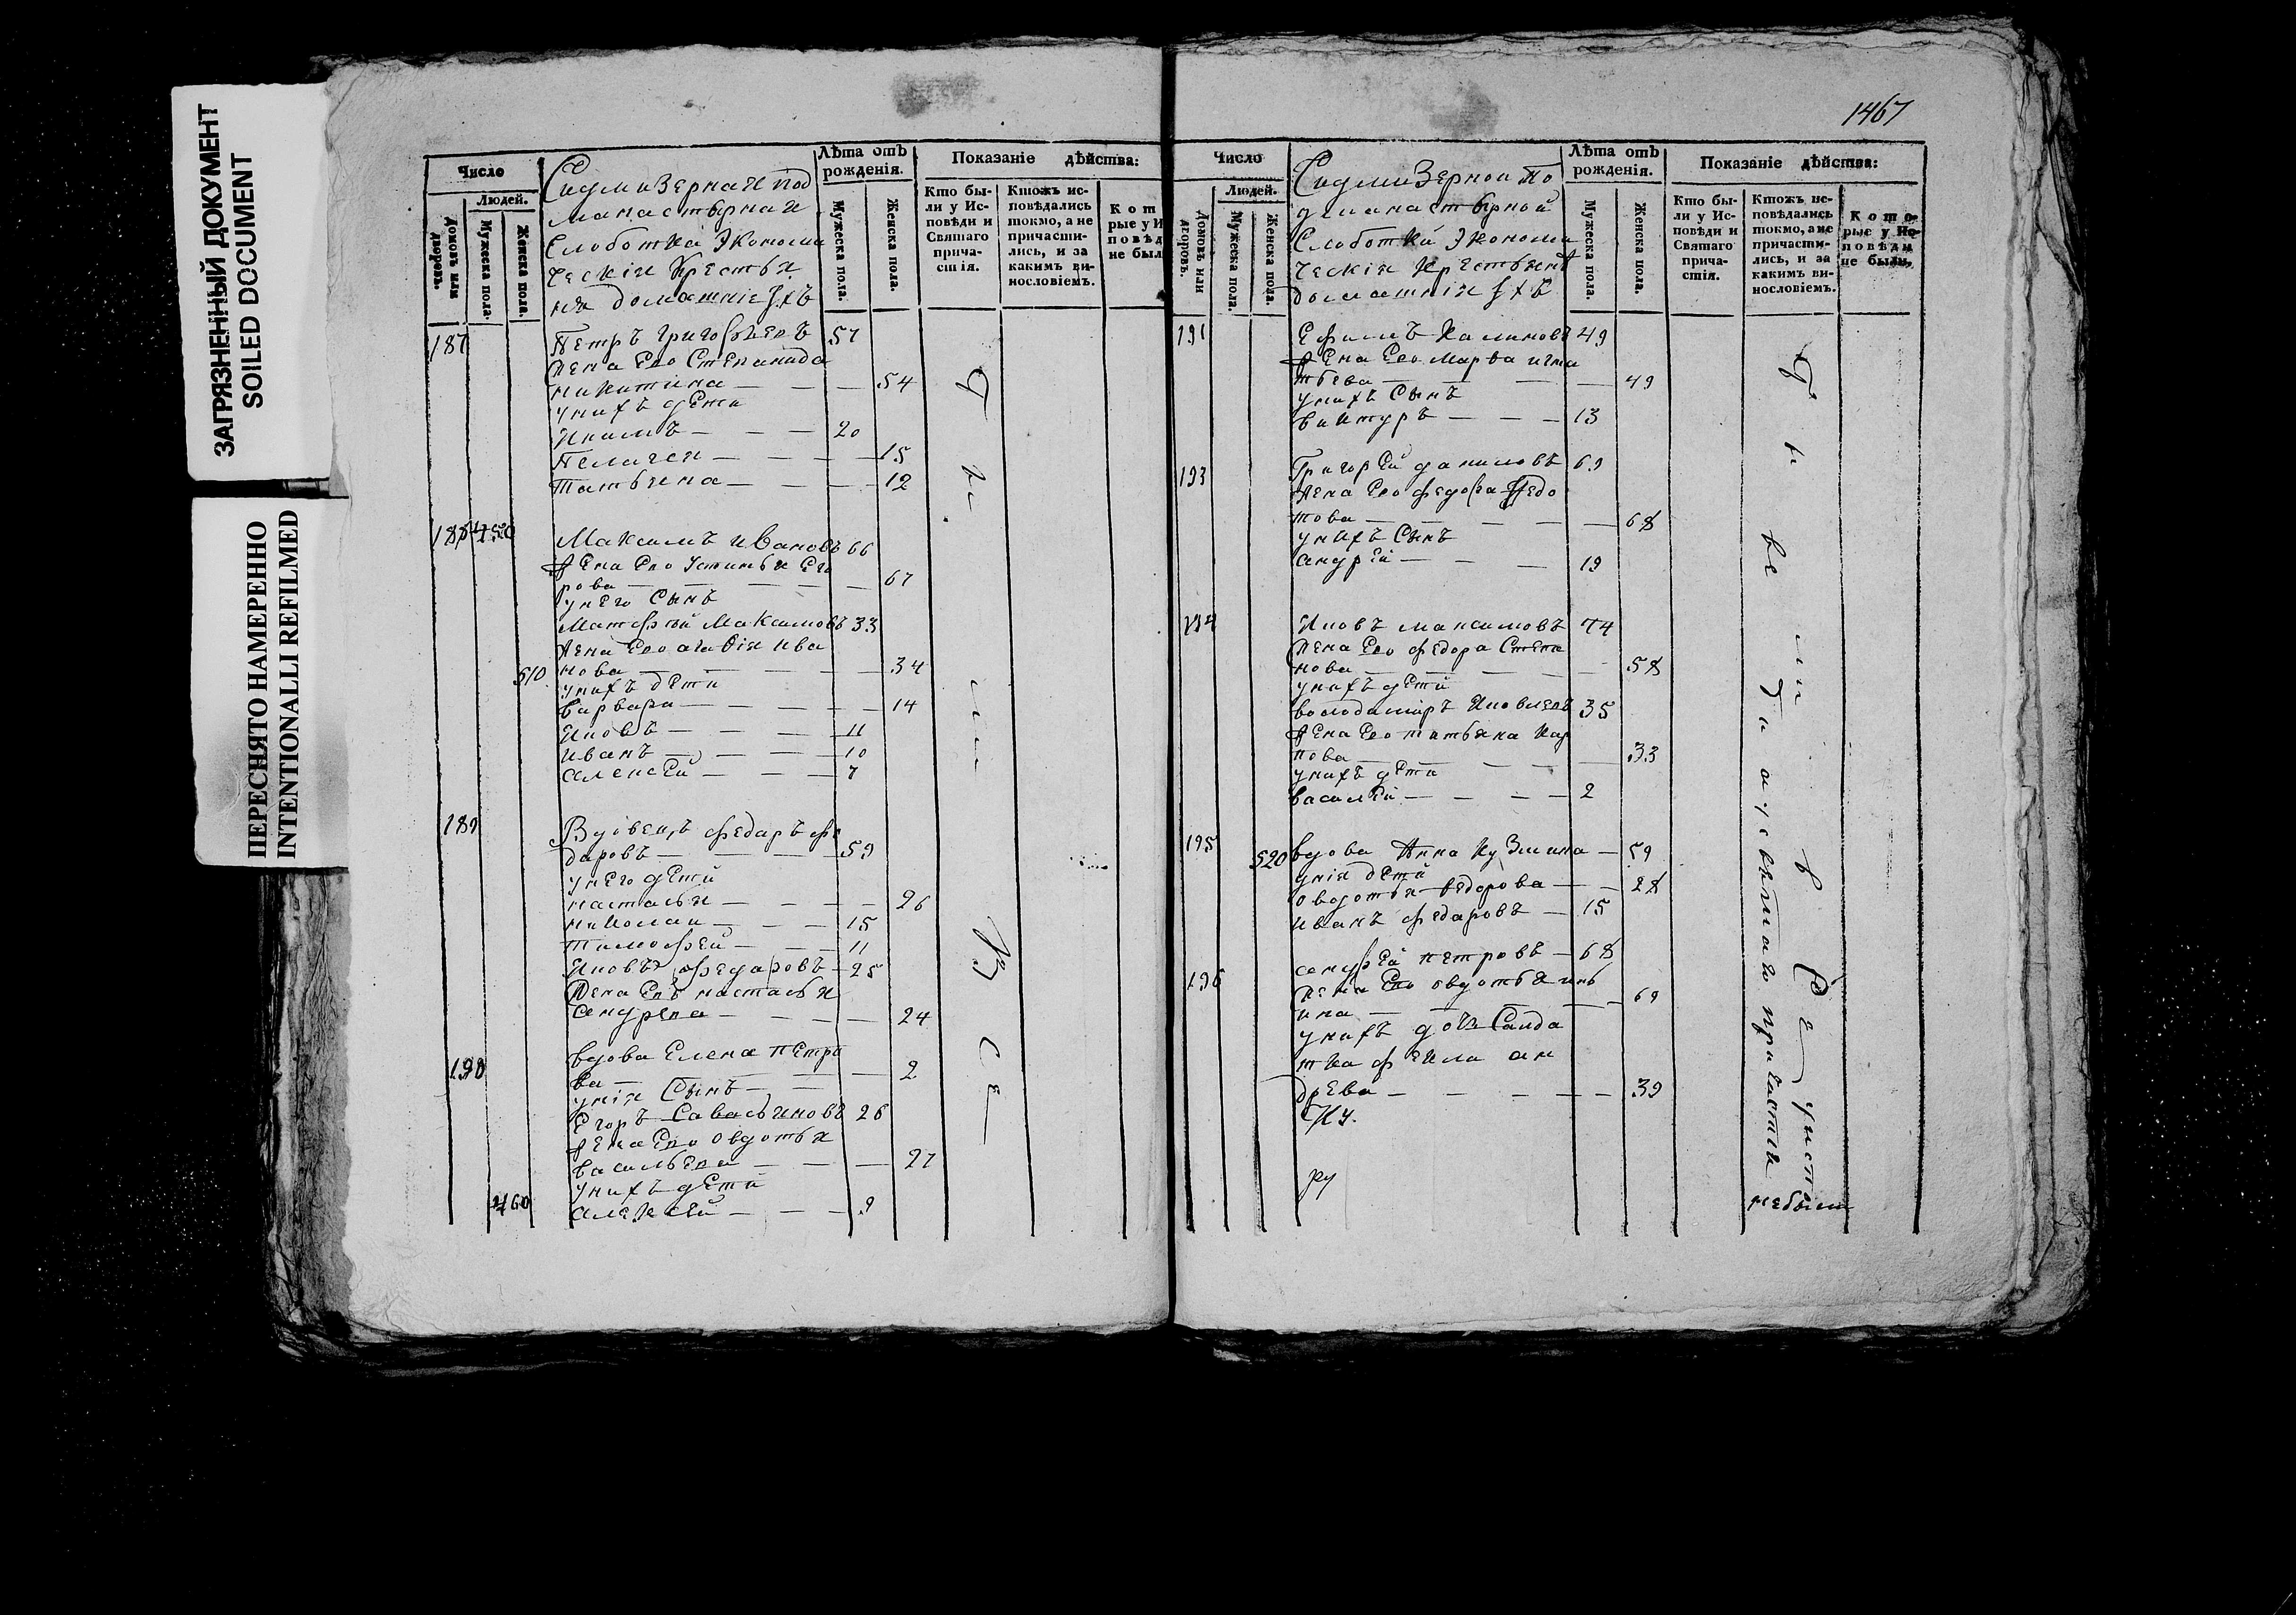 ЗАГРЯЗНЕННЫЙ ДОКУМЕНТ
SOILED DOCUMENT
ПЕРЕСНЯТО НАМЕРЕННО
INTENTIONALLI REFILMED
Число
Людей.
Домовъ или дворовъ.
Мужеска пола.
Женска пола.
Седмизерная под
манастырная
Слоботка Экономи
ческія крестья
ня домашніе ихъ
Лѣта отъ рожденія.
Мужеска пола.
Женска пола.
Показаніе дѣйства:
Кто бы-
ли у Ис-
повѣди и
Святаго
прича-
стія.
Ктожъ ис-
повѣдались
токмо, а не
причасти-
лись, и за
какимъ ви-
нословіемъ.
Кот
рые у И
повѣд
не был
187 Петръ Григорьевъ 57
жена Ево Степанида
никитина — — — 54
унихъ дети
Якимъ — — — 20
Пелагея — — — 15
Татьяна — — — 12
Максимъ ивановъ 66
жена Ево Устинья Его
рова — — — 67
унего Сынъ
Матфей Максимовъ 33
жена Ево агафія ива
510 нова — — — 34
унихъ дети
варвара — — — 14
Яковъ — — — 11
иванъ — — — 10
алексей — — — 7
189 Вдовецъ федаръ фе
даровъ — — — 59
унего дети
настасья — — — 26
николаи — — — 15
тимофеи — — — 11
Яковъ федаровъ — 25
жена Ево настасья
андрева — — — 24
190 вдова Елена петро
ва —
унія Сынъ —
Егоръ Савасьяновъ 26
жена Ево овдотья
васильева — — — 27
унихъ дети
460 алексей — — — 9
1467
Число
Людей.
Домовъ или дворовъ.
Мужеска пола.
Женска пола.
Седмизернои по
дманастырной
Слоботки Экономи
ческія крестьяня
домашнія ихъ
Лѣта отъ рожденія.
Мужеска пола.
Женска пола.
Показаніе дѣйства:
Кто бы-
ли у Ис-
повѣди и
Святаго
прича-
стія.
Ктожъ ис-
повѣдались
токмо, а не
причасти-
лись, и за
какимъ ви-
нословіемъ.
Кото-
рые у Ис-
повѣди
не были.
191 Ефимъ Калиновъ 49
жена Ево Марфа игна
тьева — — — 49
унихъ Сынъ
виктуръ — — — 13
193 Григорей даниловъ 69
жена Ево федора федо
това — — — 68
унихъ Сынъ
андрей — — — 19
194 Яковъ максимовъ 74
жена Ево федора Степа
нова — — — 58
унихъ дети
володимиръ Яковлевъ 35
жена Ево татьяна кар
пова — — — 33
унихъ дети
василей — — — 2
195 520 вдова Анна Кузмина — 59
унія дети
овдотья федорова — — 28
иванъ федаровъ — 15
196 андрей петровъ — 68
жена Ево овдотья
ина — — — 69
унихъ дочь Салда
тка фекла ан
древа — — — 39